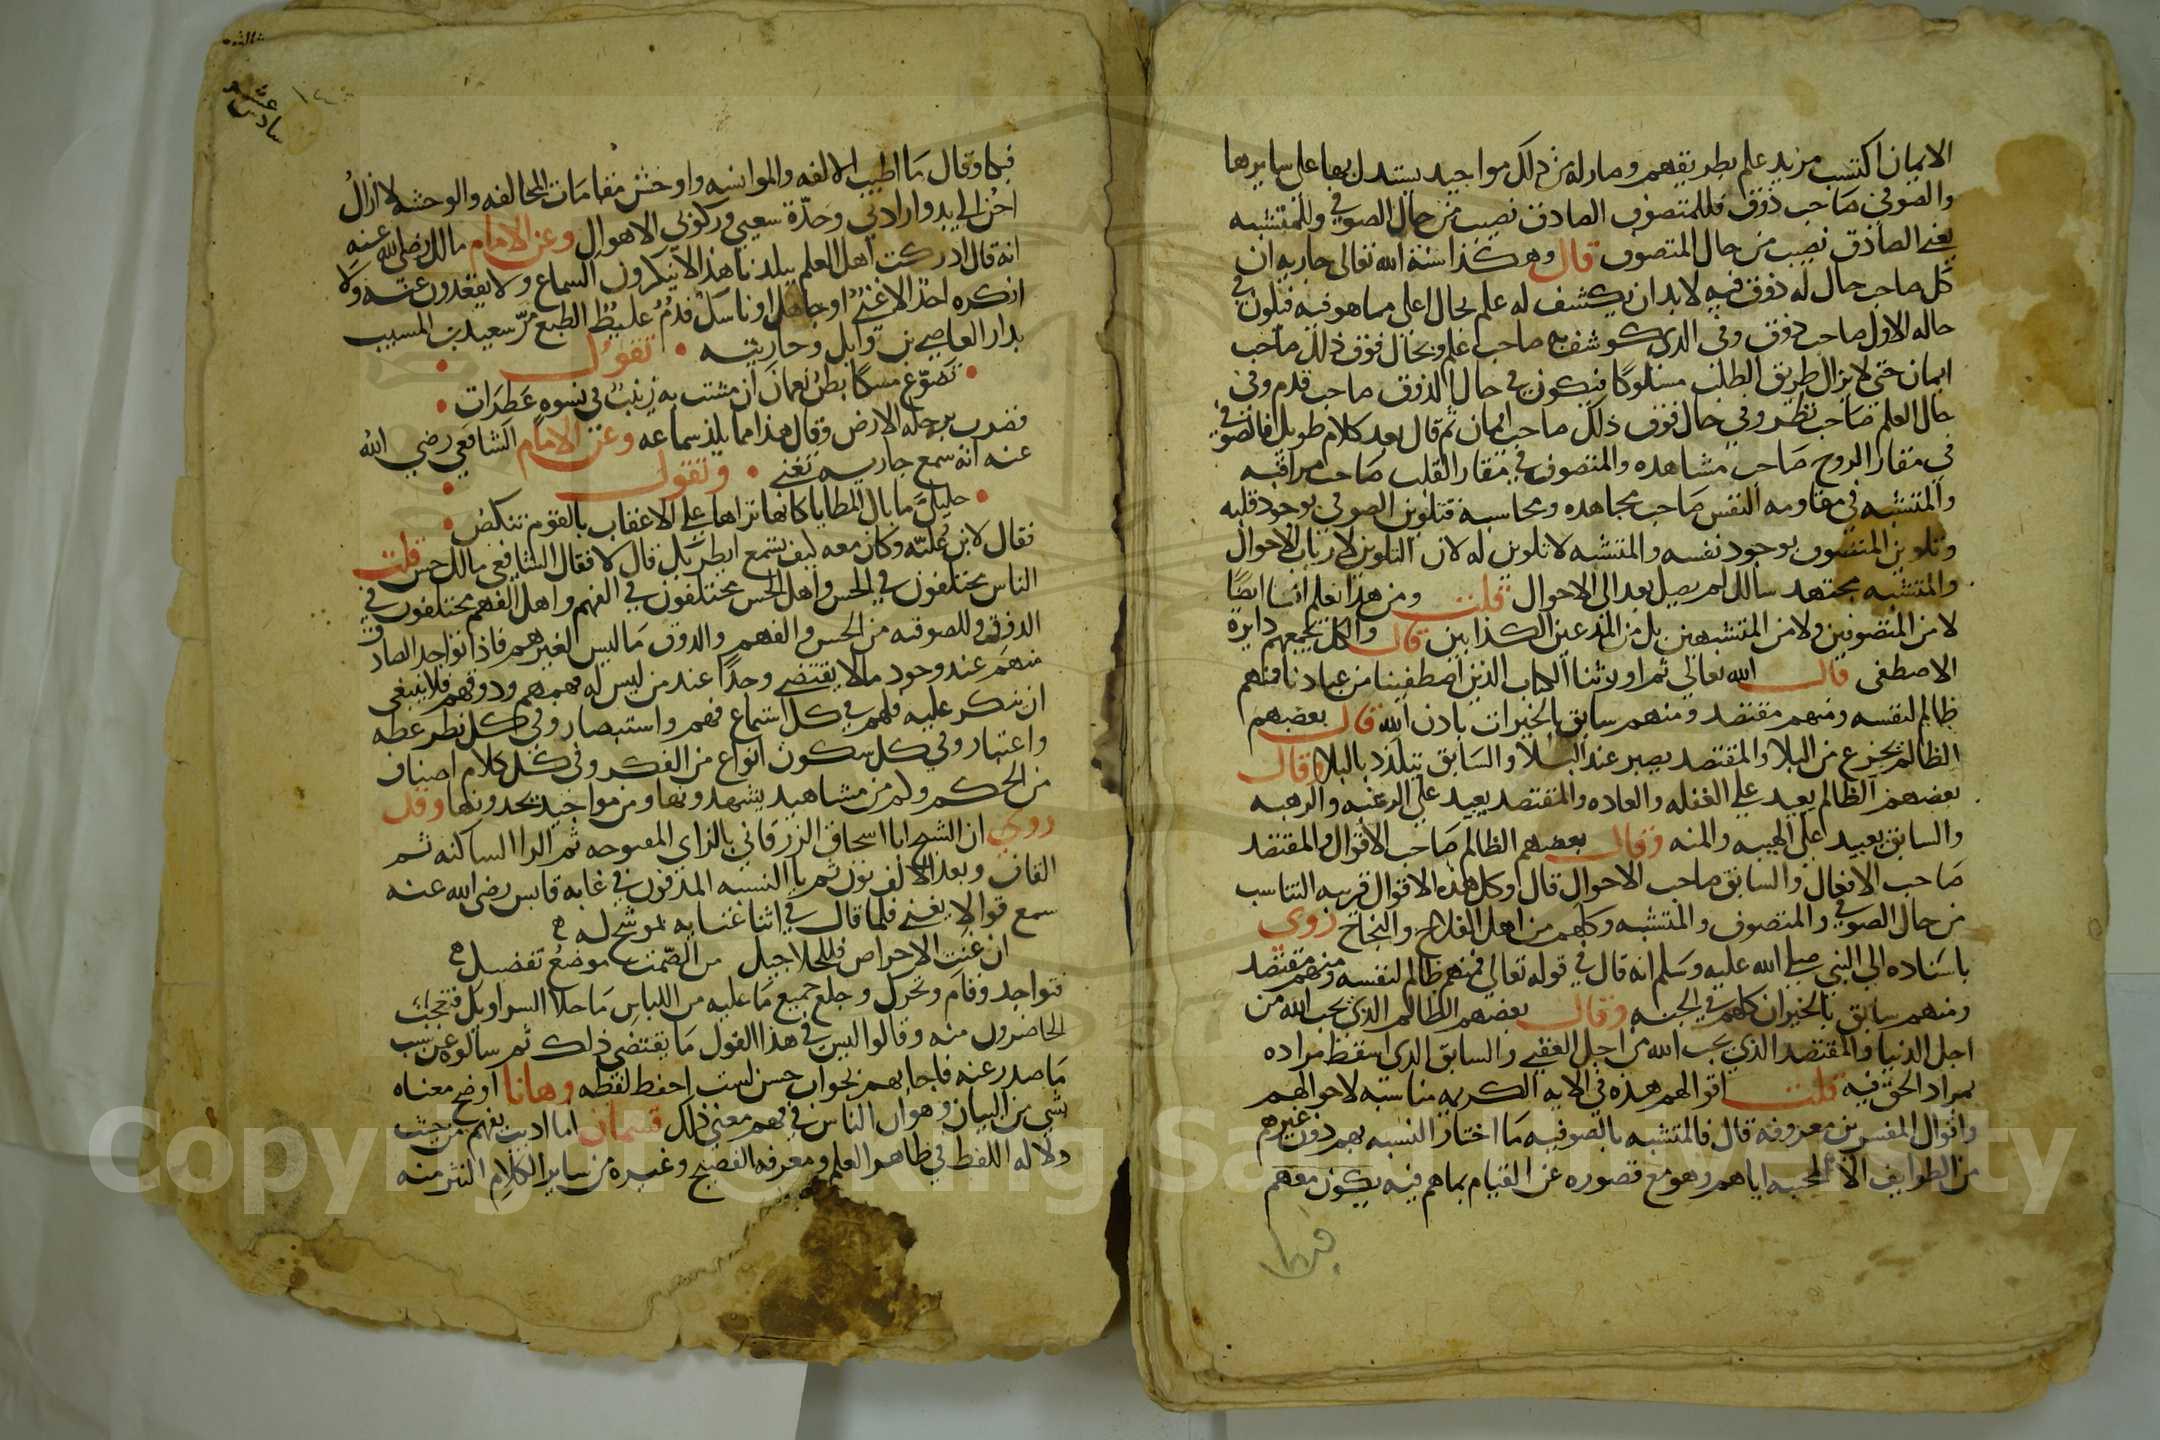 الايمان اكتسب مزيد علم بطريقهم وصار له من ذلك مواجيد يستدل بها على سايرها
والصوفي صاحب ذوق فللمتصوف الصادق نصيب من حال الصوفي وللمتشبه
يعني الصادق نصيب من حال المتصوف قال وهكذا سنة الله تعالى جاريه ان
كل صاحب حال له ذوق فيه لابد ان يكشف له علم بحال اعلى مما هو فيه فيكون في
حاله الاول صاحب ذوق وفي الذي كوشف به صاحب علم وبحال فوق ذلك صاحب
ايمان حتى لا يزال طريق الطلب مسلوكا فيكون في حال الذوق صاحب قدم وفي
حال العلم صاحب نظر وفي حال فوق ذلك صاحب ايمان ثم قال بعد كلام طويل فالصوفي
في مقار الروح صاحب مشاهده والمتصوف في مقار القلب صاحب مراقبه
والمتشبه في مقاومه النفس صاحب مجاهده ومحاسبه فتلوين الصوفي بوجود قلبه
وتلوين المتصوف بوجود نفسه والمتشبه لا تلوين له لان التلوين لارباب الاحوال
والمتشبه مجتهد سالك لم يصل بعد الى الاحوال قلت ومن هذا تعلم اننا ايضا
لا من المتصوفين ولا من المتشبهين بل من المدعين الكذابين قال والكل يجمعهم دايرة
الاصطفى قال الله تعالى ثم اورثنا الكتاب الذين اصطفينا من عبادنا فمنهم
ظالم لنفسه ومنهم مقتصد ومنهم سابق بالخيرات باذن الله قال بعضهم
الظالم يجزع من البلا والمقتصد يصبر عند البلا والسابق يتلذذ بالبلا وقال
بعضهم الظالم يعبد على الغفله والعاده والمقتصد يعبد على الرغبه والرهبه
والسابق يعبد على الهيبه والمنه وقال بعضهم الظالم صاحب الاقوال والمقتصد
صاحب الافعال والسابق صاحب الاحوال قال وكل هذه الاقوال قريبه التناسب
من حال الصوفي والمتصوف والمتشبه وكلهم من اهل الفلاح والنجاح روى
باسناده الى النبي صلى الله عليه وسلم انه قال في قوله تعالى فمنهم ظالم لنفسه ومنهم مقتصد
ومنهم سابق بالخيرات كلهم في الجنه وقال بعضهم الظالم الذي يحب الله من
اجل الدنيا والمقتصد الذي يحب الله من اجل العقبى والسابق الذي اسقط مراده
بمراد الحق فيه قلت اقوالهم هذه في الايه الكريمه مناسبة لاحوالهم
واقوال المفسرين معروفه قال فالمتشبه بالصوفيه ما اختار النسبه بهم دون غيرهم
من الطوايف الا لمحبه اياهم وهو مع قصوره عن القيام بما هم فيه يكون معهم
فيما
سادس عشر
١٤
فيما وقال ما اطيب الالفه والموانسه واوحش مقامات المخالفه والوحشه لا ازال
احن الى بدو ارادتي وحدة سعيي وركوبي الاهوال وعن الامام مالك رضي الله عنه
انه قال ادركت اهل العلم ببلدنا هذا لا ينكرون السماع ولا يقعدون عنه ولا
انكره احد الا غبي او جاهل او ناسك فدم غليظ الطبع مر سعيد بن المسيب
بدار العاصي بن وايل وجاريته تقول
تضوع مسكا بطن نعمان ان مشت به زينب في نسوه عطرات
فضرب برجله الارض وقال هذا مما يلذ سماعه وعن الامام الشافعي رضي الله
عنه انه سمع جاريه تغني وتقول
خليلي ما بال المطايا كانها نراها على الاعقاب بالقوم تنكص
فقال لابن علية وكان معه ليف يستمع ايطربك قال لا فقال الشافعي مالك حس قلت
الناس يختلفون في الحس واهل الحس مختلفون في الفهم واهل الفهم مختلفون في
الذوق وللصوفيه من الحس والفهم والذوق ما ليس لغيرهم فاذا تواجد الصادق
منهم عند وجود ما لا يقتضي وجدا عند من ليس له فهمهم وذوقهم فلا ينبغي
ان ينكر عليه فلهم في كل استماع فهم واستبصار وفي كل نظر عظه
واعتبار وفي كل سكون انواع من الفكر وفي كل كلام اصناف
من الحكم ولم من مشاهيد يشهدونها ومن مواجيد يجدونها وقد
روي ان الشيخ ابا اسحاق الزرقاني بالزاي المفتوحه ثم الرا الساكنه ثم
القاف وبعد الالف نون ثم يا النسبه المدفون في غابه قابس رضي الله عنه
سمع قوالا يغني فلما قال في اثنا غنايه بموشح له
ان غنت الاخراص فللحلاجيل من الصمت موضع تفضيل
فتواجد وقام وتحرك وخلع جميع ما عليه من اللباس ما خلا السراويل فتعجب
الحاضرون منه وقالوا ليس في هذا القول ما يقتضي ذلك ثم سالوه عن سبب
ما صدر عنه فاجابهم بجواب حسن لست احفظ لفظه وهانا اوضح معناه
بشي من البيان وهو ان الناس في فهم معنى ذلك قسمان اما اديب يفهم من حيث
دلاله اللفظ في ظاهر العلم ومعرفه الفصيح وغيره من ساير الكلام النثر منه